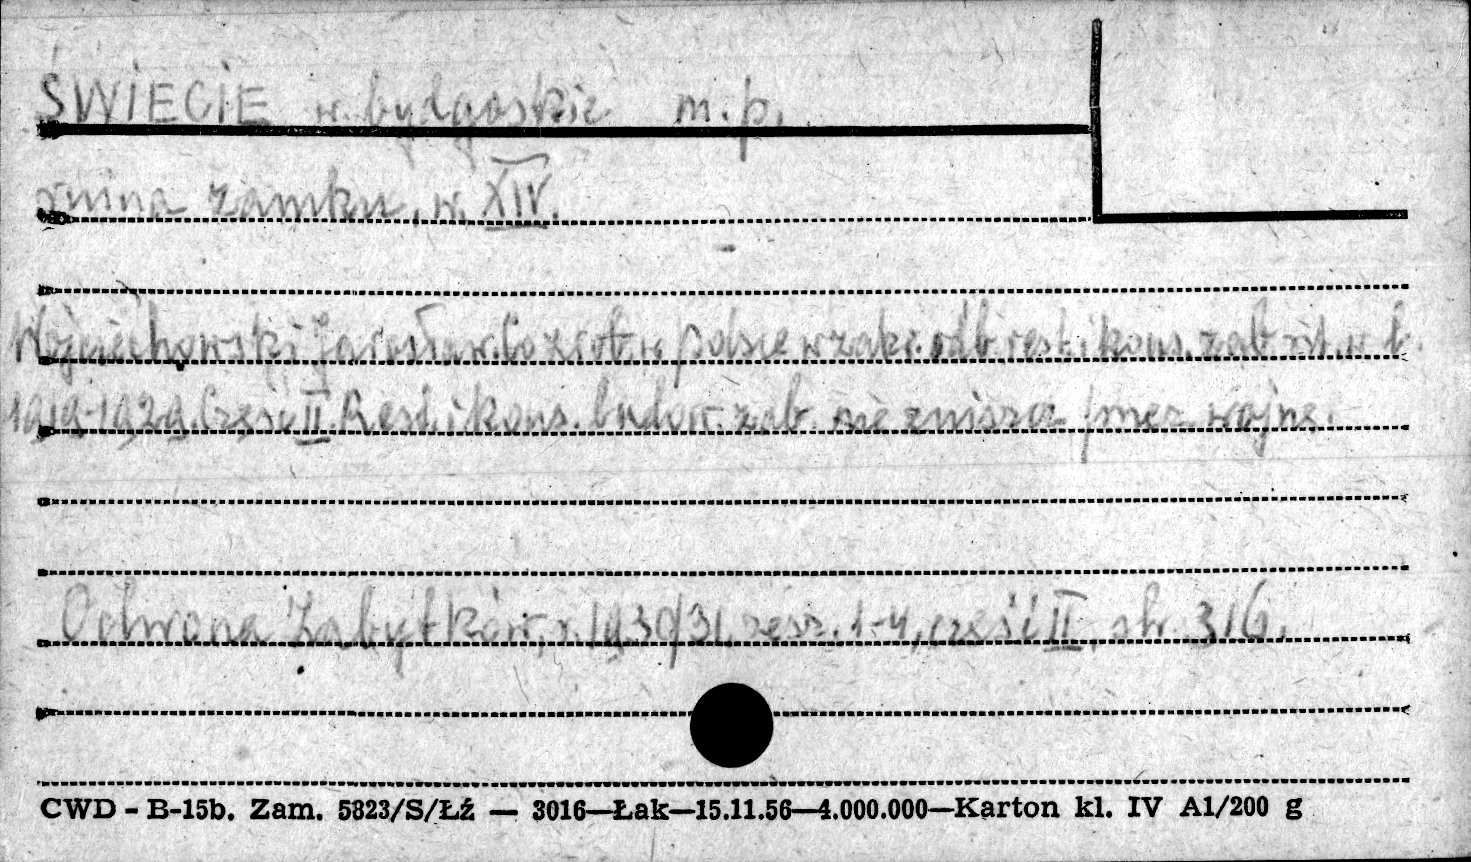 ŚWIECIE w. bydgoskie m. p.
ruina zamku, w. XIV.
Wojciechowski Jarosław. Co zrob. w Polsce w zakr. odb. rest. i kons. zab. szt. w l.
1919-1929. Część II. Rest. i kons. budow. zab. nie zniszcz. przez wojnę.
Ochrona Zabytków, r. 1930/31, zesz. 1-4, część II, str. 316.
CWD - B-15b. Zam. 5823/S/Łź — 3016—Łak—15.11.56—4.000.000—Karton kl. IV A1/200 g